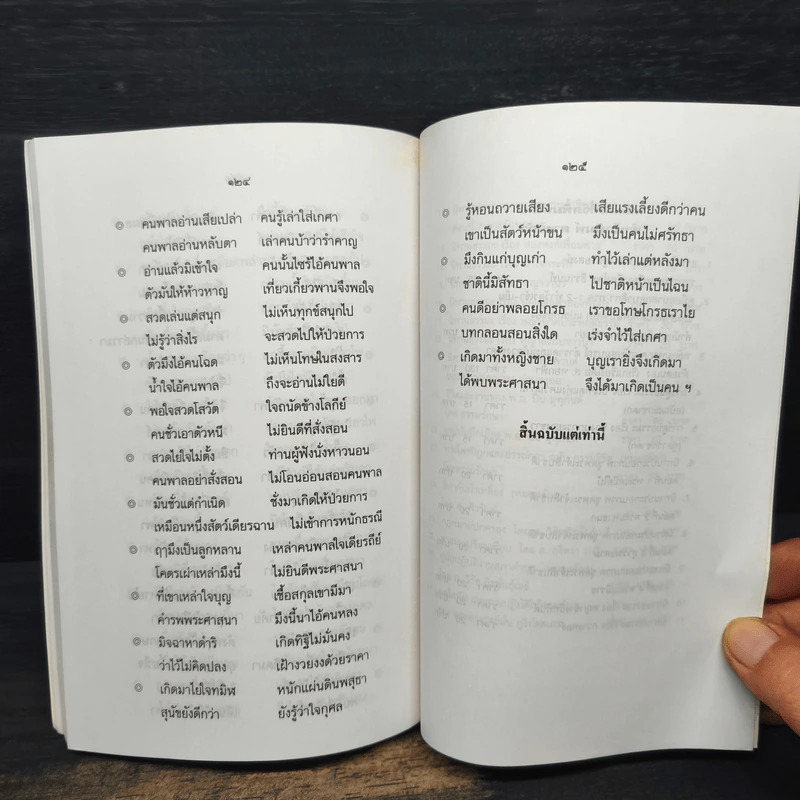 ๑๒๔
๏ คนพาลอ่านเสียเปล่า คนรู้เล่าใส่เกศา
คนพาลอ่านหลับตา เล่าคนบ้าว่ารำคาญ
๏ อ่านแล้วมิเข้าใจ คนนั้นไซร้ไอ้คนพาล
ตัวมันให้ห้าวหาญ เที่ยวเกี้ยวพานจึงพอใจ
๏ สวดเล่นแต่สนุก ไม่เห็นทุกข์สนุกไป
ไม่รู้ว่าสิ่งไร จะสวดไปให้ป่วยการ
๏ ตัวมึงไอ้คนโฉด ไม่เห็นโทษในสงสาร
น้ำใจไอ้คนพาล ถึงจะอ่านไม่ไยดี
๏ พอใจสวดโสวัด ใจถนัดข้างโลกีย์
คนชั่วเอาตัวหนี ไม่ยินดีที่สั่งสอน
๏ สวดไยใจไม่ตั้ง ท่านผู้ฟังนั่งหาวนอน
คนพาลอย่าสั่งสอน ไม่โอนอ่อนสอนคนพาล
๏ มันชั่วแต่กำเนิด ชั่งมาเกิดให้ป่วยการ
เหมือนหนึ่งสัตว์เดียรฉาน ไม่เข้าการหนักธรณี
๏ ฤๅมึงเป็นลูกหลาน เหล่าคนพาลใจเดียรถีย์
โคตรเผ่าเหล่ามึงนี้ ไม่ยินดีพระศาสนา
๏ ที่เขาเหล่าใจบุญ เชื้อสกุลเขามีมา
คำรพพระศาสนา มึงนี้นาไอ้คนหลง
๏ มิจฉาหาดำริ เกิดทิฐิไม่มั่นคง
ว่าไว้ไม่คิดปลง เฝ้างวยงงด้วยราคา
๏ เกิดมาไยใจทมิฬ หนักแผ่นดินพสุธา
สุนัขยังดีกว่า ยังรู้ว่าใจกุศล
๑๒๕
๏ รู้หอนถวายเสียง เสียแรงเลี้ยงดีกว่าคน
เขาเป็นสัตว์หน้าขน มึงเป็นคนไม่ศรัทธา
๏ มึงกินแก่บุญเก่า ทำไว้เล่าแต่หลังมา
ชาตินี้มิสัทธา ไปชาติหน้าเป็นไฉน
๏ คนดีอย่าพลอยโกรธ เราขอโทษโกรธเราไย
บทกลอนสอนสิ่งใด เร่งจำไว้ใส่เกศา
๏ เกิดมาทั้งหญิงชาย บุญเรายิ่งจึงเกิดมา
ได้พบพระศาสนา จึงได้มาเกิดเป็นคน ฯ
สิ้นฉบับแต่เท่านี้